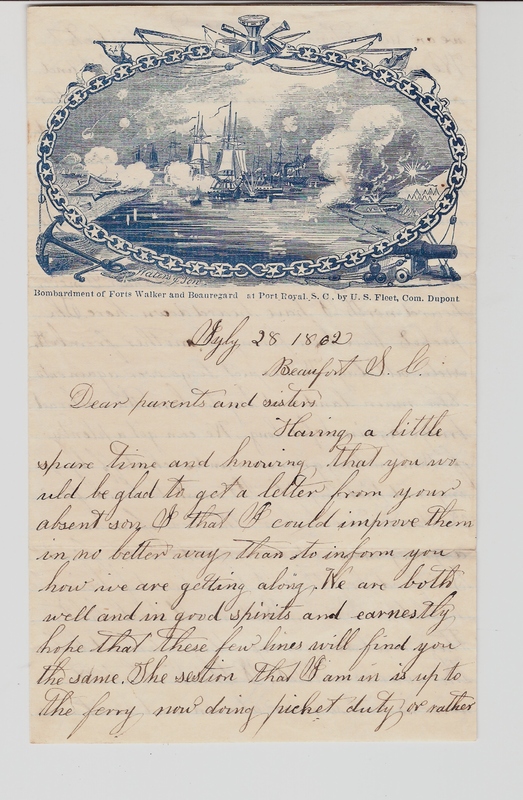 Waters & Son
Bombardment of Forts Walker and Beauregard at Port Royal, S. C., by U. S. Fleet, Com. Dupont
July 28 1862
Beaufort S. C.
Dear parents and sisters
Having a little
spare time and knowing that you wo
uld be glad to get a letter from your
absent son, I that I could improve them
in no better way than to inform you
how we are getting along. We are both
well and in good spirits and earnestly
hope that these few lines will find you
the same. The section that I am in is up to
the ferry now doing picket duty or rather